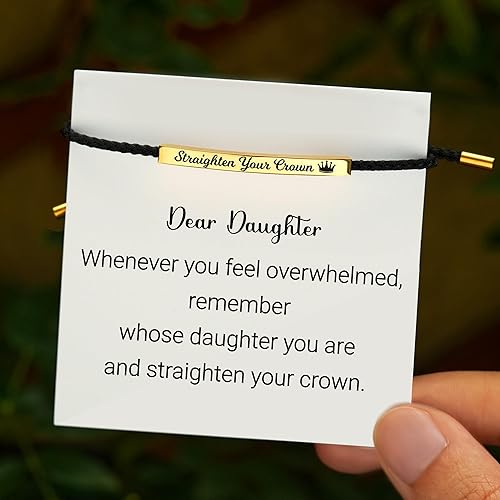 Straighten Your Crown
Dear Daughter
Whenever you feel overwhelmed,
remember
whose daughter you are
and straighten your crown.